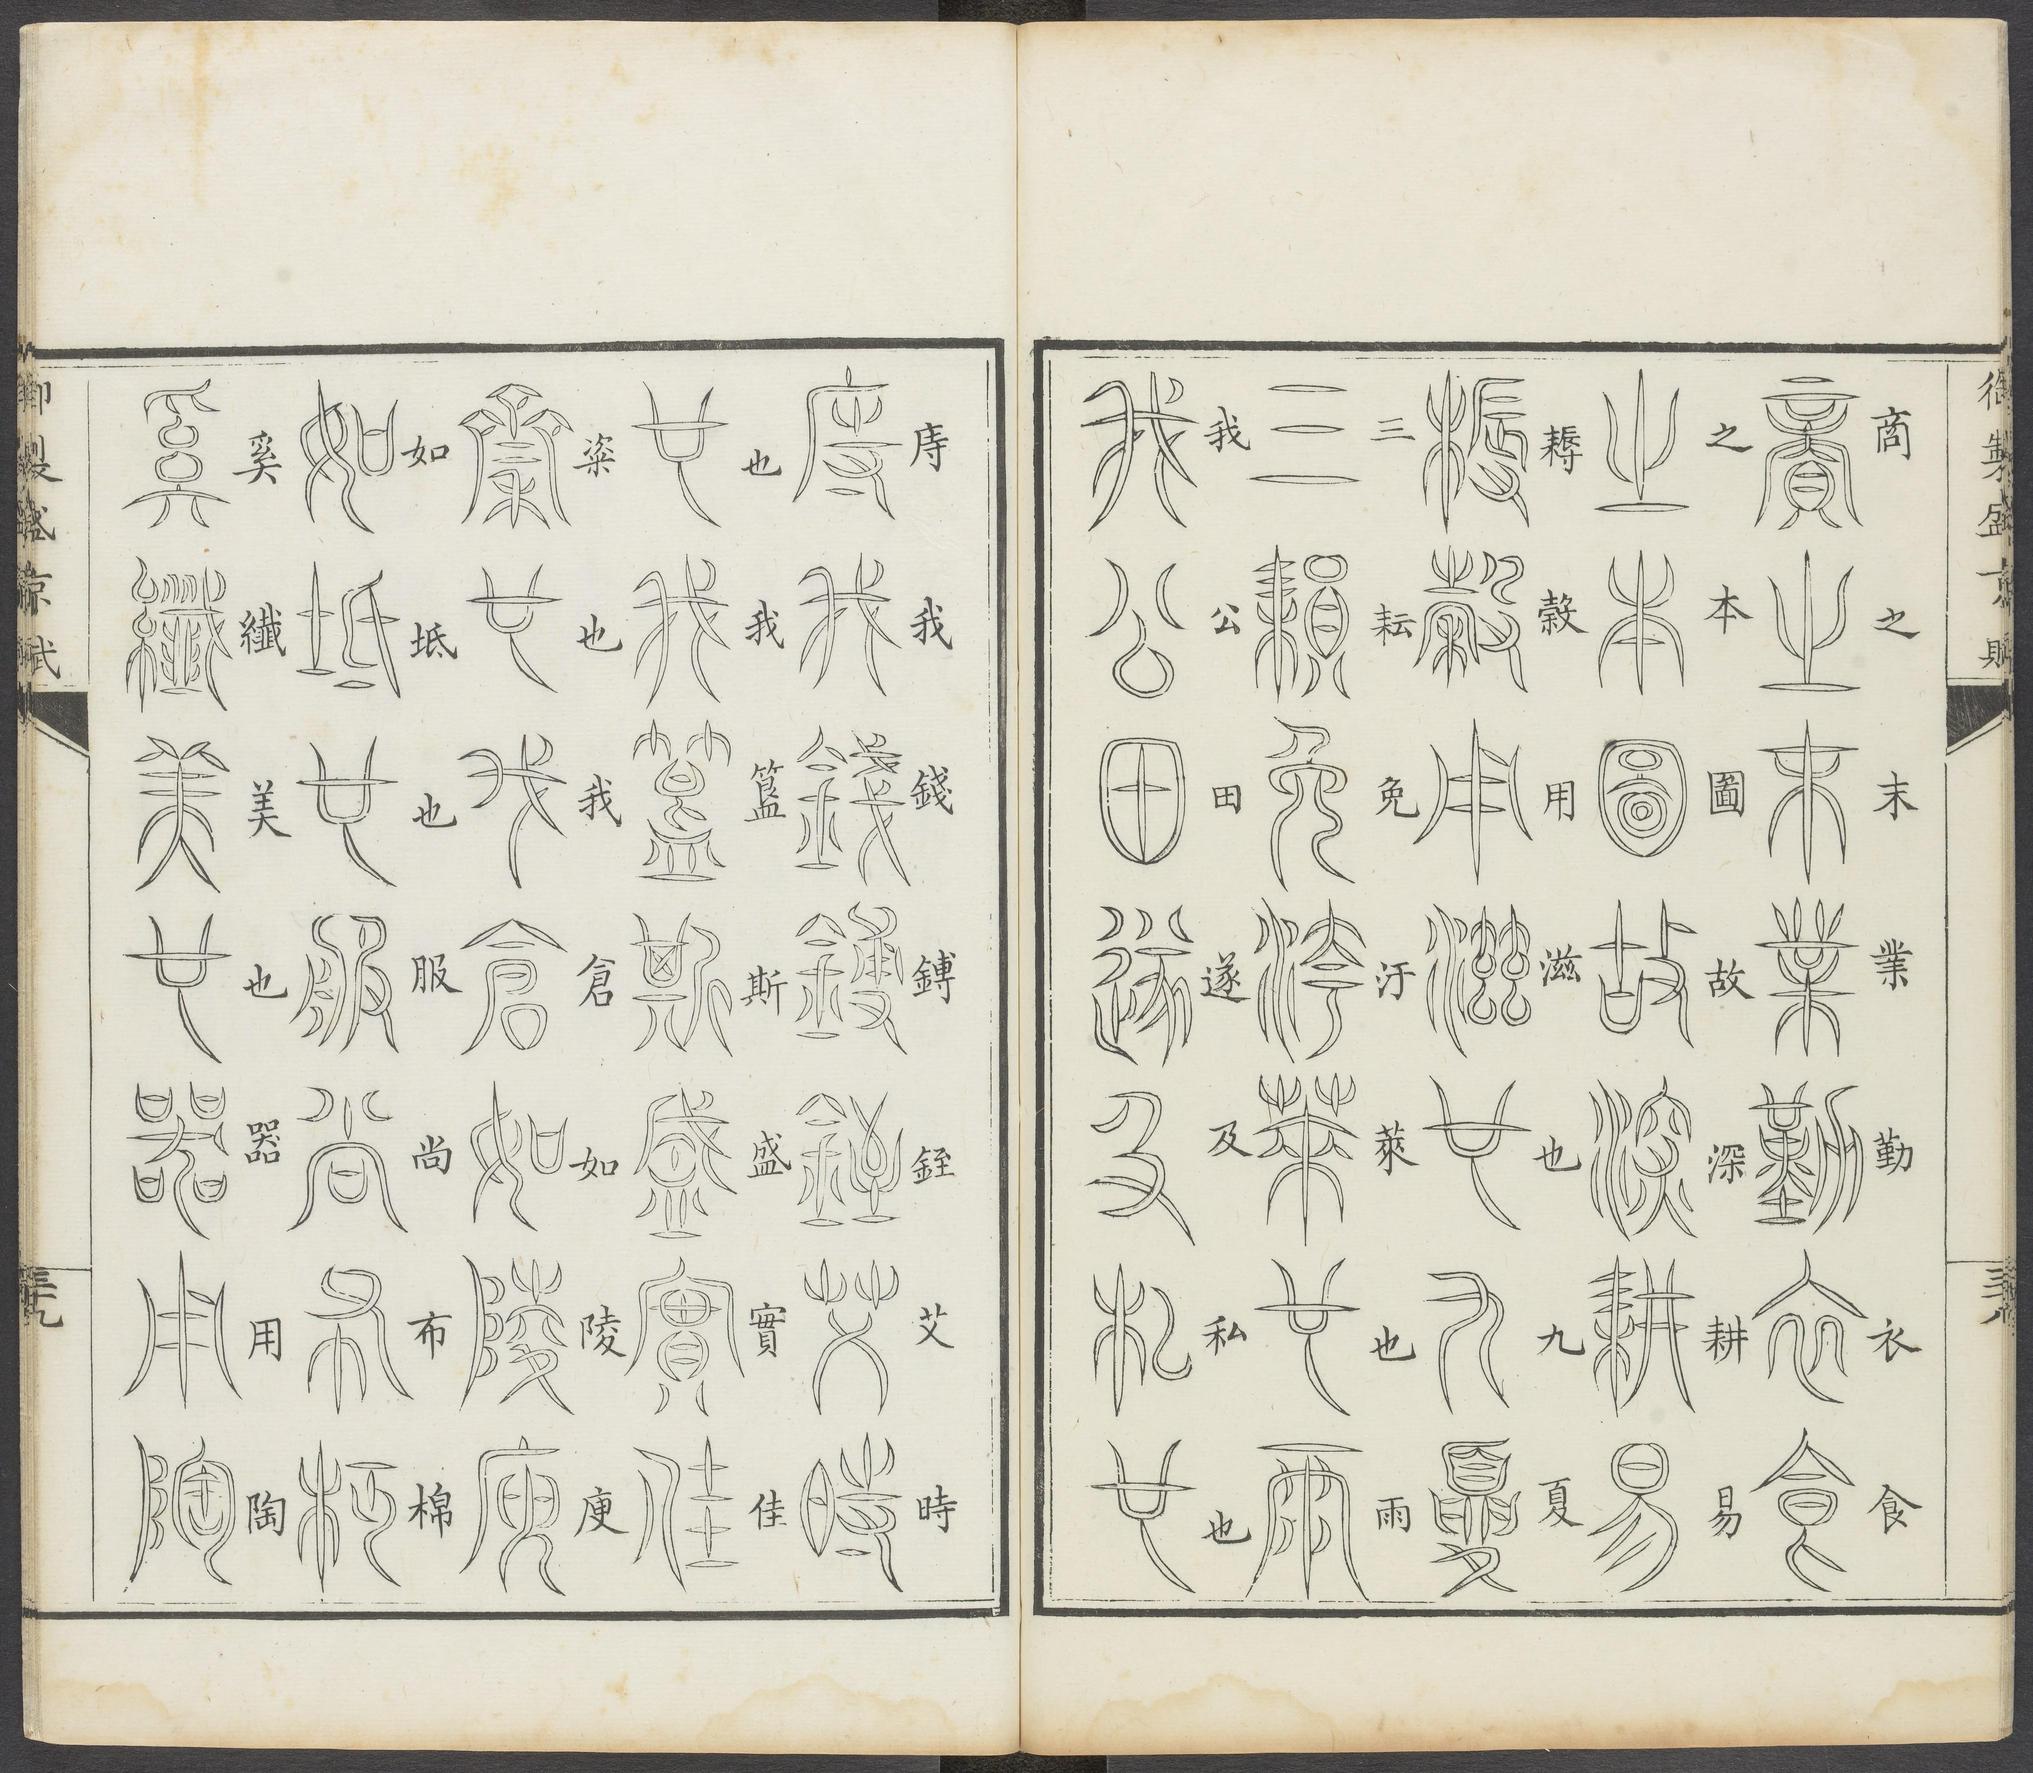 御製盛京賦
三十八
商之末業勤衣食
之本圖故深耕易
耨穀用滋也九夏
三耘免汙萊也雨
我公田遂及私也
庤我錢鎛銍艾時
也我簠斯盛實佳
粢也我倉如陵庾
如坻也服尚布棉
奚纖美也器用陶
御製盛京賦
三十九